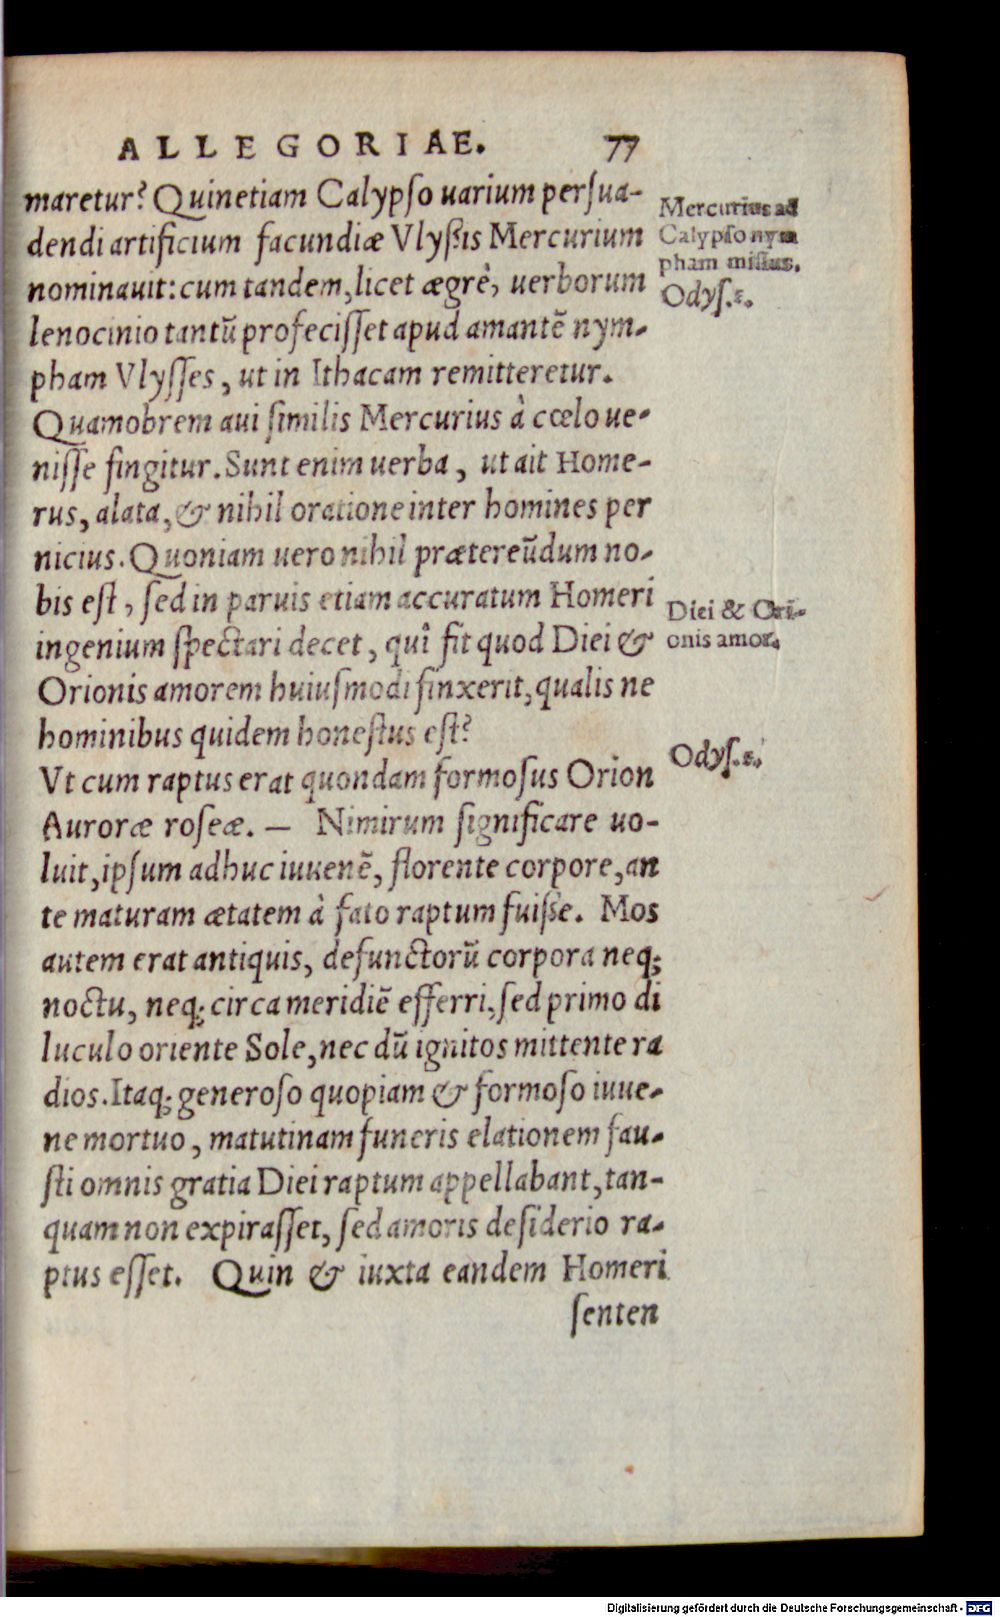 ALLEGORIAE. 77
maretur? Quinetiam Calypſo uarium perſua-
dendi artificium facundiæ Vlyſsis Mercurium
nominauit: cum tandem, licet ægrè, uerborum
lenocinio tantũ profeciſſet apud amantẽ nym-
pham Vlyſſes, ut in Ithacam remitteretur.
Quamobrem aui ſimilis Mercurius à cœlo ue-
niſſe fingitur. Sunt enim uerba, ut ait Home-
rus, alata, & nihil oratione inter homines per
nicius. Quoniam uero nihil prætereũdum no-
bis eſt, ſed in paruis etiam accuratum Homeri
ingenium ſpectari decet, quî fit quod Diei &
Orionis amorem huiuſmodi finxerit, qualis ne
hominibus quidem honeſtus eſt?
Vt cum raptus erat quondam formoſus Orion
Auroræ roſeæ. — Nimirum ſignificare uo-
luit, ipſum adhuc iuuenẽ, florente corpore, an
te maturam ætatem à fato raptum fuiſse. Mos
autem erat antiquis, defunctorũ corpora neq;
noctu, neq; circa meridiẽ efferri, ſed primo di
luculo oriente Sole, nec dũ ignitos mittente ra
dios. Itaq; generoſo quopiam & formoſo iuue-
ne mortuo, matutinam funeris elationem fau-
ſti omnis gratia Diei raptum appellabant, tan-
quam non expiraſſet, ſed amoris deſiderio ra-
ptus eſſet. Quin & iuxta eandem Homeri
ſenten
Mercurius ad
Calypſo nym
pham miſſus.
Odyſ.ε.
Diei & Ori-
onis amor.
Odyſ.ε.
Digitalisierung gefördert durch die Deutsche Forschungsgemeinschaft - DFG